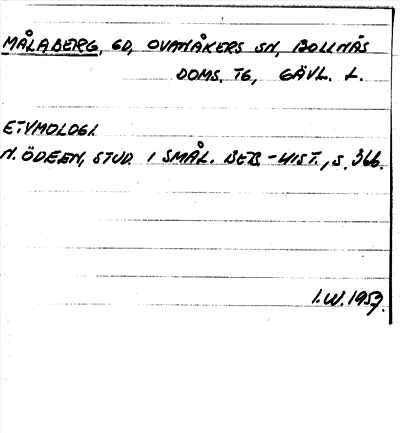 MÅLABERG, GD, OVANÅKERS SN, BOLLNÄS
DOMS. TG, GÄVL. L.
ETYMOLOGI.
N. ÖDEEN, STUD. I SMÅL. BEB.-HIST., S. 366.
I.W. 1959.